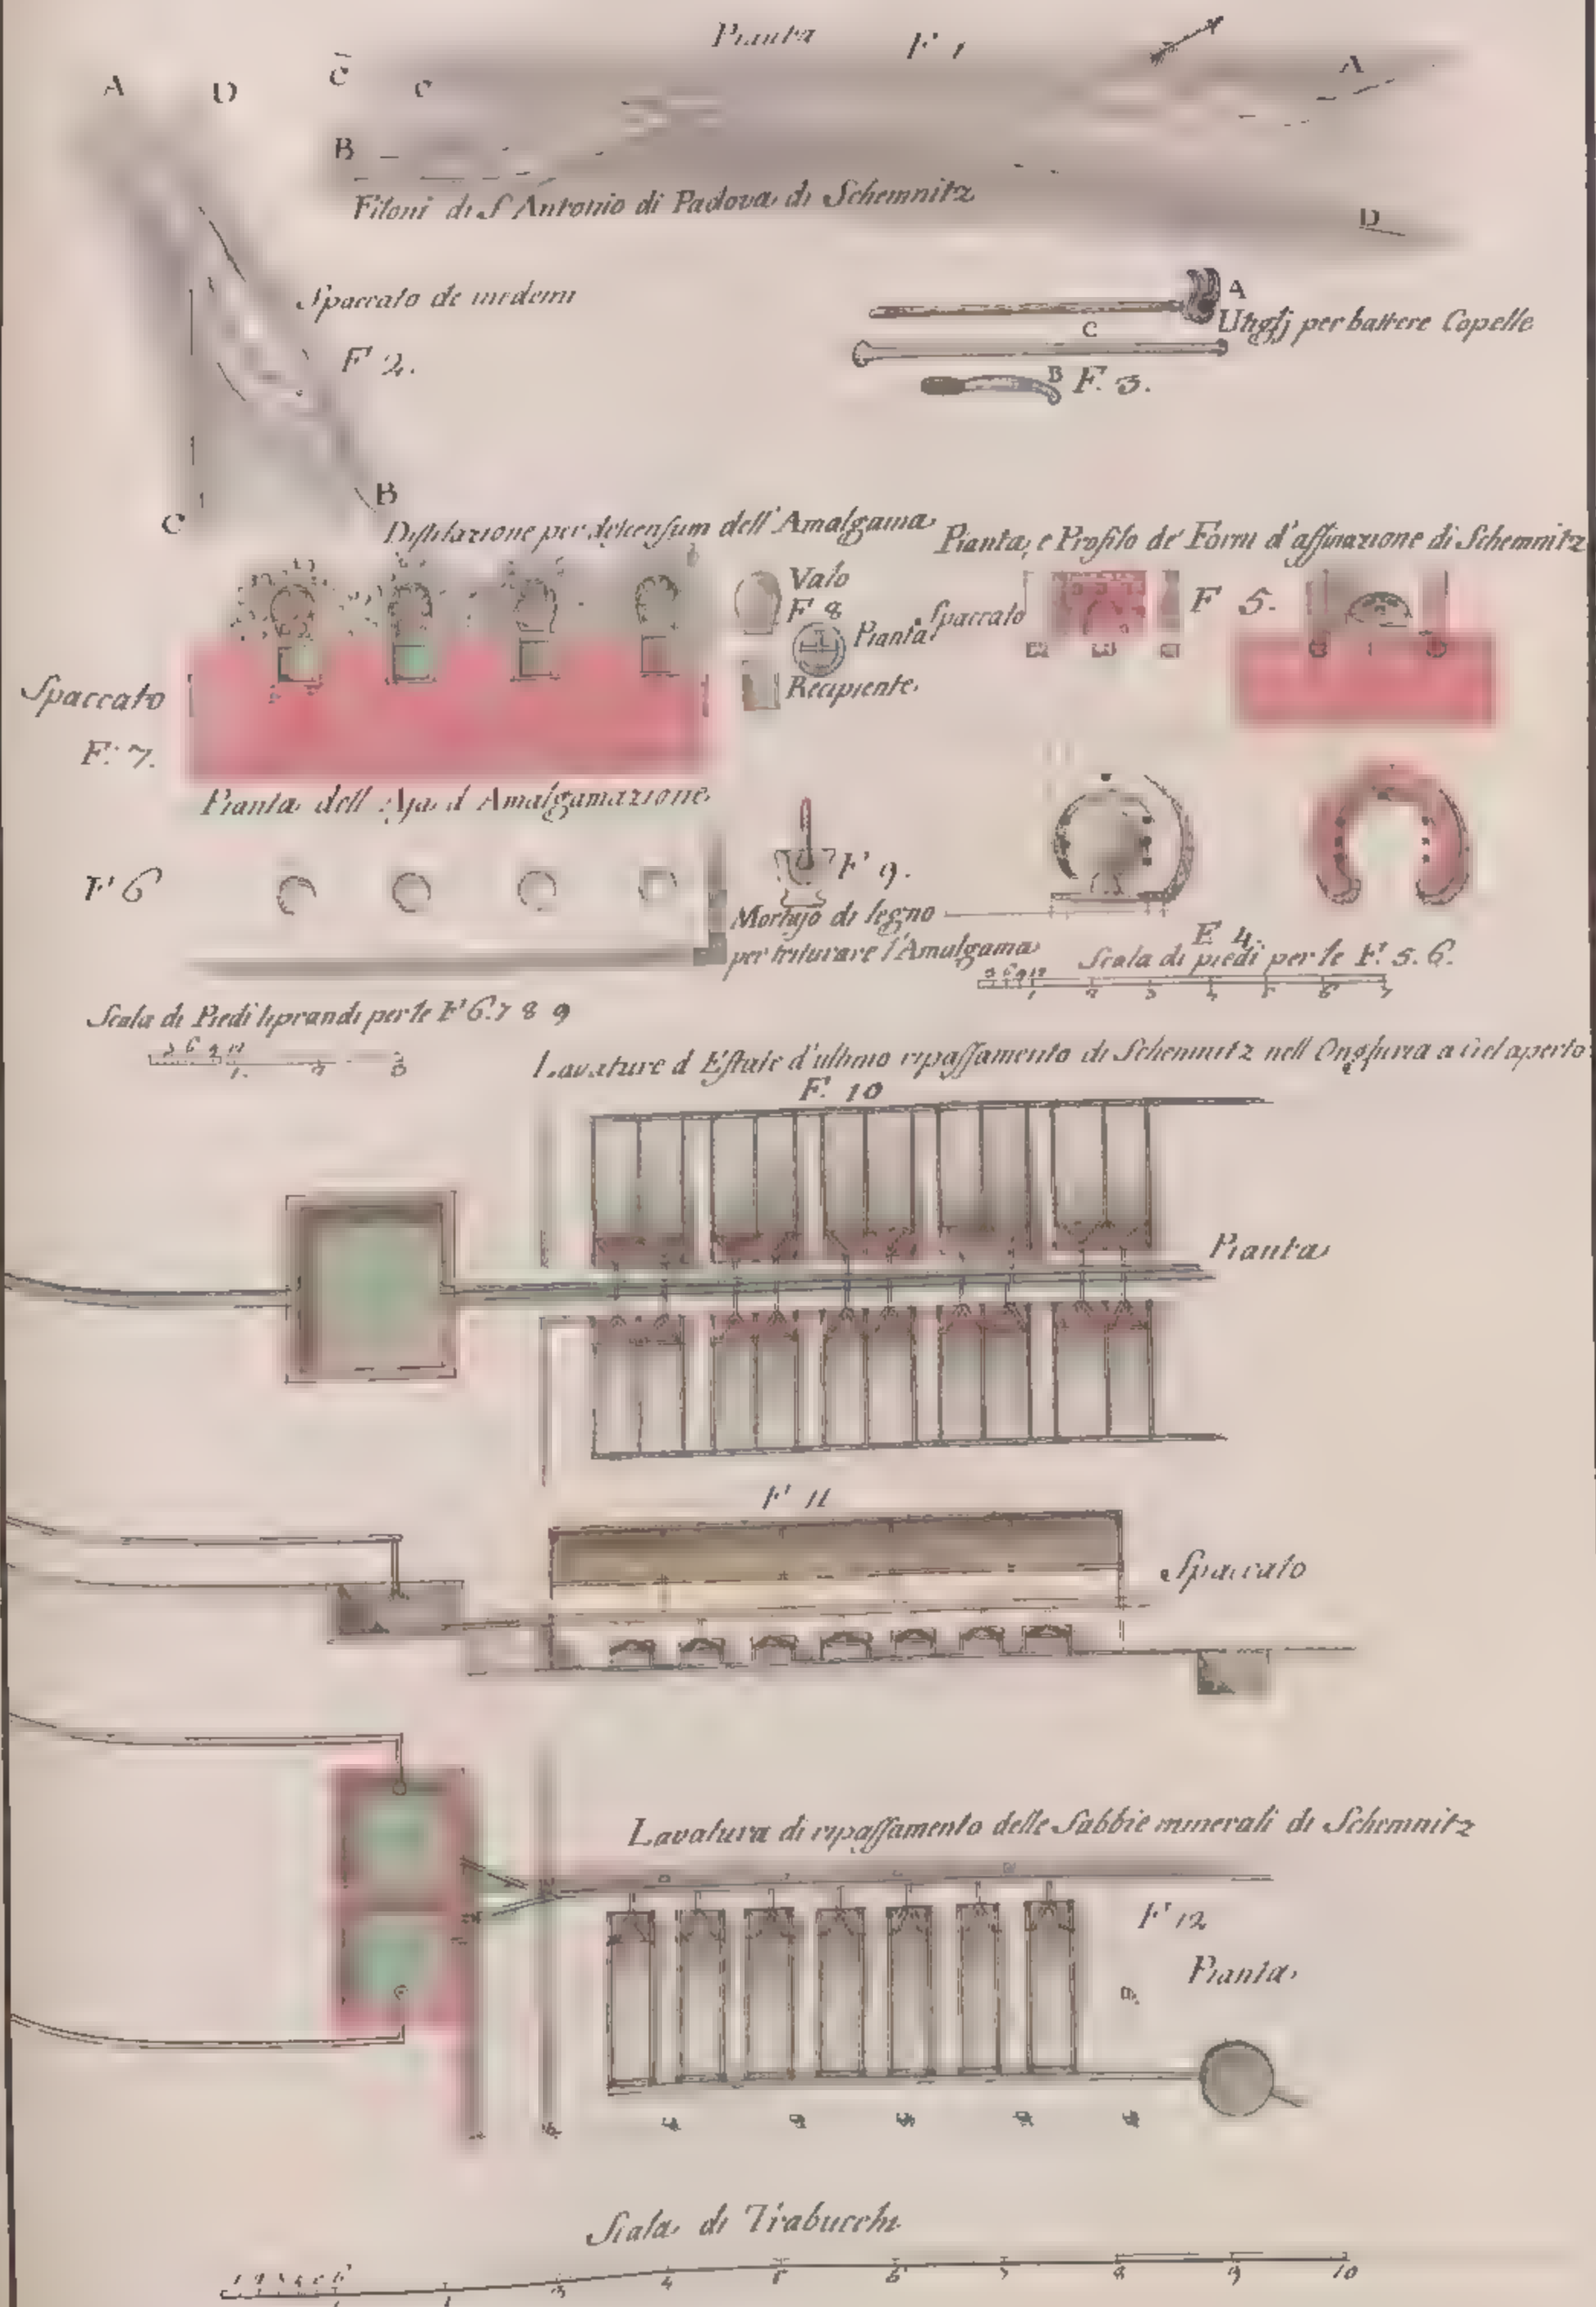 Pianta F 1
A D C C A
B
Filoni di S Antonio di Padova di Schemnitz
D
Spaccato de medemi
F 2.
A
Utiglj per battere Copelle
C
B F. 3.
C B
Distilazione per descensum dell'Amalgama
Pianta e Profilo de' Forni d'affinazione di Schemnitz
Vaso
F 8
Pianta
Recipiente
Spaccato
F 5.
Spaccato
F. 7.
Pianta dell Aja d Amalgamazione
F 6
F 9.
Mortajo di legno
per triturare l'Amalgama
F 4.
Scala di piedi per le F. 5. 6.
3 6 9 12 1 2 3 4 5 6 7
Scala di Piedi liprandi per le F 6. 7 8 9
3 6 9 12 1. 2 3
Lavature d Estate d'ultimo ripassamento di Schemnitz nell Ongheria a Ciel aperto
F. 10
Pianta
F 11
Spaccato
Lavatura di ripassamento delle Sabbie minerali di Schemnitz
F 12
Pianta
Scala di Trabucchi
1 2 3 4 5 6 1 3 4 5 6 7 8 9 10